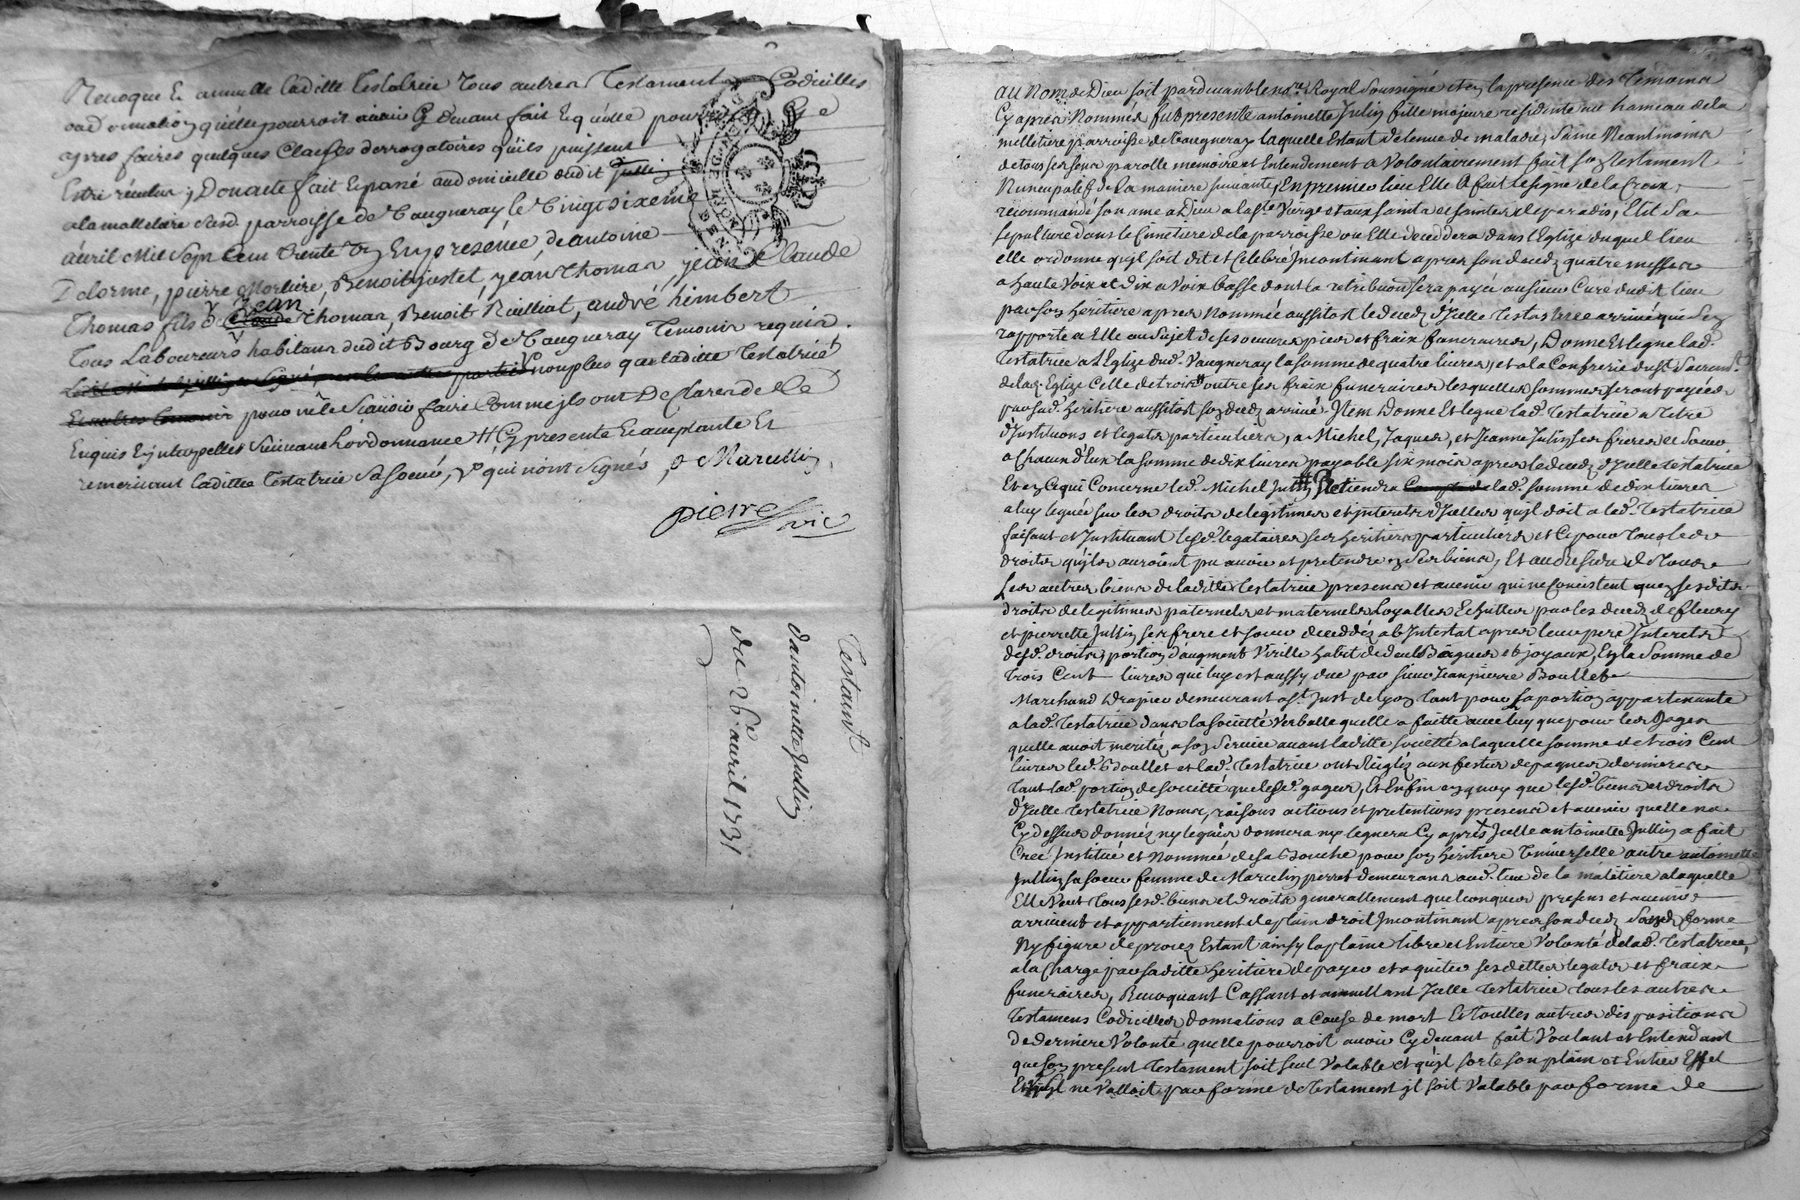 Revoque Et annulle laditte testatrice tous autres Testament Codicilles
ou donnation quelle pourroit avoir Cy devant fait Equelle pourroit Cy
apres faires quelques Clauses derrogatoires quils puissent
Donacte fait Epassé audomicille dudit Jullin
alamalletiere susd. parroisse de Vaugneray le Vingtsixeme
avril Mil Sept Cent trente Un En presence de antoine
Delorme, pierre Mortiere, Benoit jostet, jean Thomas, jean Claude
Thomas fils de Jean Thomas, Benoit Ruilliat, andré himbert
Tous Laboureurs habitans dudit Bourg de Vaugneray temoins requis
nonplus que laditte testatrice
pour ne Scavoir faire Comme jls ont Declaré de Ce
Enquis Ejnterpellés Suivant Lordonnance # Cy presente Eacceptante Et
remerciant laditte Testatrice Sasoeur, qui nont Signés, & Marcellin
pierre
Testament
dantoinette Jullin
du 26e avril 1731
au Nom de Dieu soit pardevant le no.re Royal Soussigné et en la presence des Temoins
Cy apres Nommés fut presente antoinette Julin fille majeure residente au hameau de la
milletiere parroisse de Vaugneray laquelle Estant detenue de maladie, Saine Neantmoins
de tous ses sens parolle memoire et Entendement a Volontairement fait son testament
Nuncupatif de La maniere suivante, En premier lieu Elle A fait le signe de la Croix,
recommandé son ame a Dieu a la ste Vierge et aux saints et saintes de paradis, Elit Sa
sepulture dans le Cimetiere de la parroisse ou Elle decedera dans l'Eglize duquel lieu
elle ordonne qu'jl soit dit et Celebré Jncontinant apres son deced quatre messes
a haute Voix et dix a Voix basse dont la retribution sera payée au sieur Curé dudit lieu
par son heritiere apres nommée aussitost le deced d'Jcelle testatrice arrivé que s'en
rapporte a Elle au Sujet de ses oeuvres pies et fraix funeraires, Donne Et legue lad.
Testatrice a L'Eglize dud. Vaugneray la somme de quatre livres, et a la Confrerie du St Sacrem.t
de lad. Eglize Celle de trois outre ses fraix funeraires lesquelles sommes seront payées
par sad. heritiere aussitost son deced arrivé. Jtem Donne Et legue lad. testatrice a titre
d'Jnstitutions et legats particuliers, a Michel, Jaques, et Jeanne Julin ses freres et Soeur
a Chacun d'Eux la somme de dix livres payable six mois apres le deced d'Jcelle testatrice
Et en Ce qui Concerne led. Michel Jullin Retiendra lad. somme de dix livres
a luy leguée sur les droits de legitimes et interets d'Jcelles qu'jl doit a lad. Testatrice
faisant et Jnstituant lesd. legataires ses heritiers particuliers et Ce pour tous les
droits qu'jls auroient pu avoir et pretendre en ses biens, Et au Residu de Tous
Les autres biens de laditte testatrice presens et avenir qui ne Consistent qu'en ses dits
droits de legitimes paternels et maternels Loyalles Echuttes par les deced de fleury
et pierrette Jullin ses frere et soeur decedéz ab Jntestat apres leur pere Jnterets
desd. droits, portion d'augment Virille habit de deuil Bagues et joyaux, En la Somme de
trois Cent livres que luy est aussy due par sieur Jean pierre Boullet
Marchand drapier demeurant a St Just de Lyon tant pour sa portion appartenante
a lad. testatrice dans la Societté Verballe quelle a faitte avec luy que pour les Gages
quelle avoit meritéz a son Service avant laditte societté a laquelle somme de trois Cent
livres led. Boullet et lad. testatrice ont Régléz aux festes de paques dernieres
tant lad. portion de societté que lesd. gages, Et Enfin en quoy que lesd. biens et droits
d'Jcelle testatrice Noms, raisons actions et pretentions presens et avenir quelle na
Cy dessus donnés ny legués donnera ny leguera Cy apres Jcelle antoinette Jullin a fait
Creé Jnstitué et Nommée de sa Bouche pour son heritiere Universelle autre antoinette
Jullin sa soeur femme de Marcelin pierre demeurans aud. lieu de la maletiere a laquelle
Elle Veut tous sesd. biens et droits generallement quelconques presens et avenir
arrivent et appartiennent de plain droit Jncontinant apres son deced Sans forme
Ny figure de procez Estant ainsy la plaine libre et Entiere Volonté de lad. testatrice,
a la Charge par saditte heritiere de payer et aquiter ses dettes legats et fraix
funeraires, Revoquant Cassant et annullant Jcelle testatrice tous les autres
testamens Codicilles donnations a Cause de mort Et toutes autres dispositions
de derniere Volonté quelle pourroit avoir Cy devant fait Voulant et Entendant
que son present testament soit seul Valable et qu'jl sorte son plain et Entier Effet
Et sjl ne Valloit par forme de testament jl soit Valable par forme de